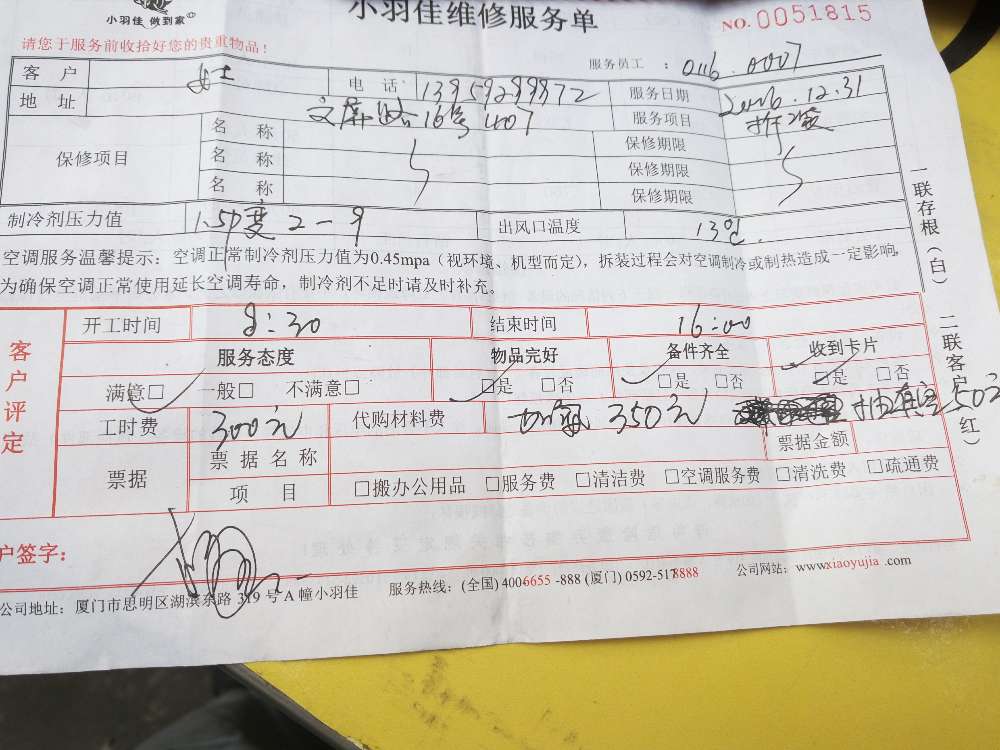 小羽佳 做到家
小羽佳维修服务单
NO.0051815
请您于服务前收拾好您的贵重物品！
服务员工 ： 0116.0007
客 户 女士 电 话： 13959299872 服务日期 12.31
地 址 16号407 服务项目 拆装
保修项目 名 称 保修期限
名 称 保修期限
名 称 保修期限
制冷剂压力值 1.5P变 2-9 出风口温度 13℃
空调服务温馨提示：空调正常制冷剂压力值为0.45mpa（视环境、机型而定），拆装过程会对空调制冷或制热造成一定影响，
为确保空调正常使用延长空调寿命，制冷剂不足时请及时补充。
一联存根（白） 二联客户（红）
客户评定
开工时间 8:30 结束时间 16:00
服务态度 物品完好 备件齐全 收到卡片
满意□ 一般□ 不满意□ □是 □否 □是 □否 □是 □否
工时费 300元 代购材料费 加氟 350元 抽真空50元
票据 票据名称 票据金额
项 目 □搬办公用品 □服务费 □清洁费 □空调服务费 □清洗费 □疏通费
户签字：
公司地址：厦门市思明区湖滨东路 319 号 A 幢小羽佳 服务热线：(全国) 4006655 -888 (厦门) 0592-5178888 公司网站：www.xiaoyujia .com